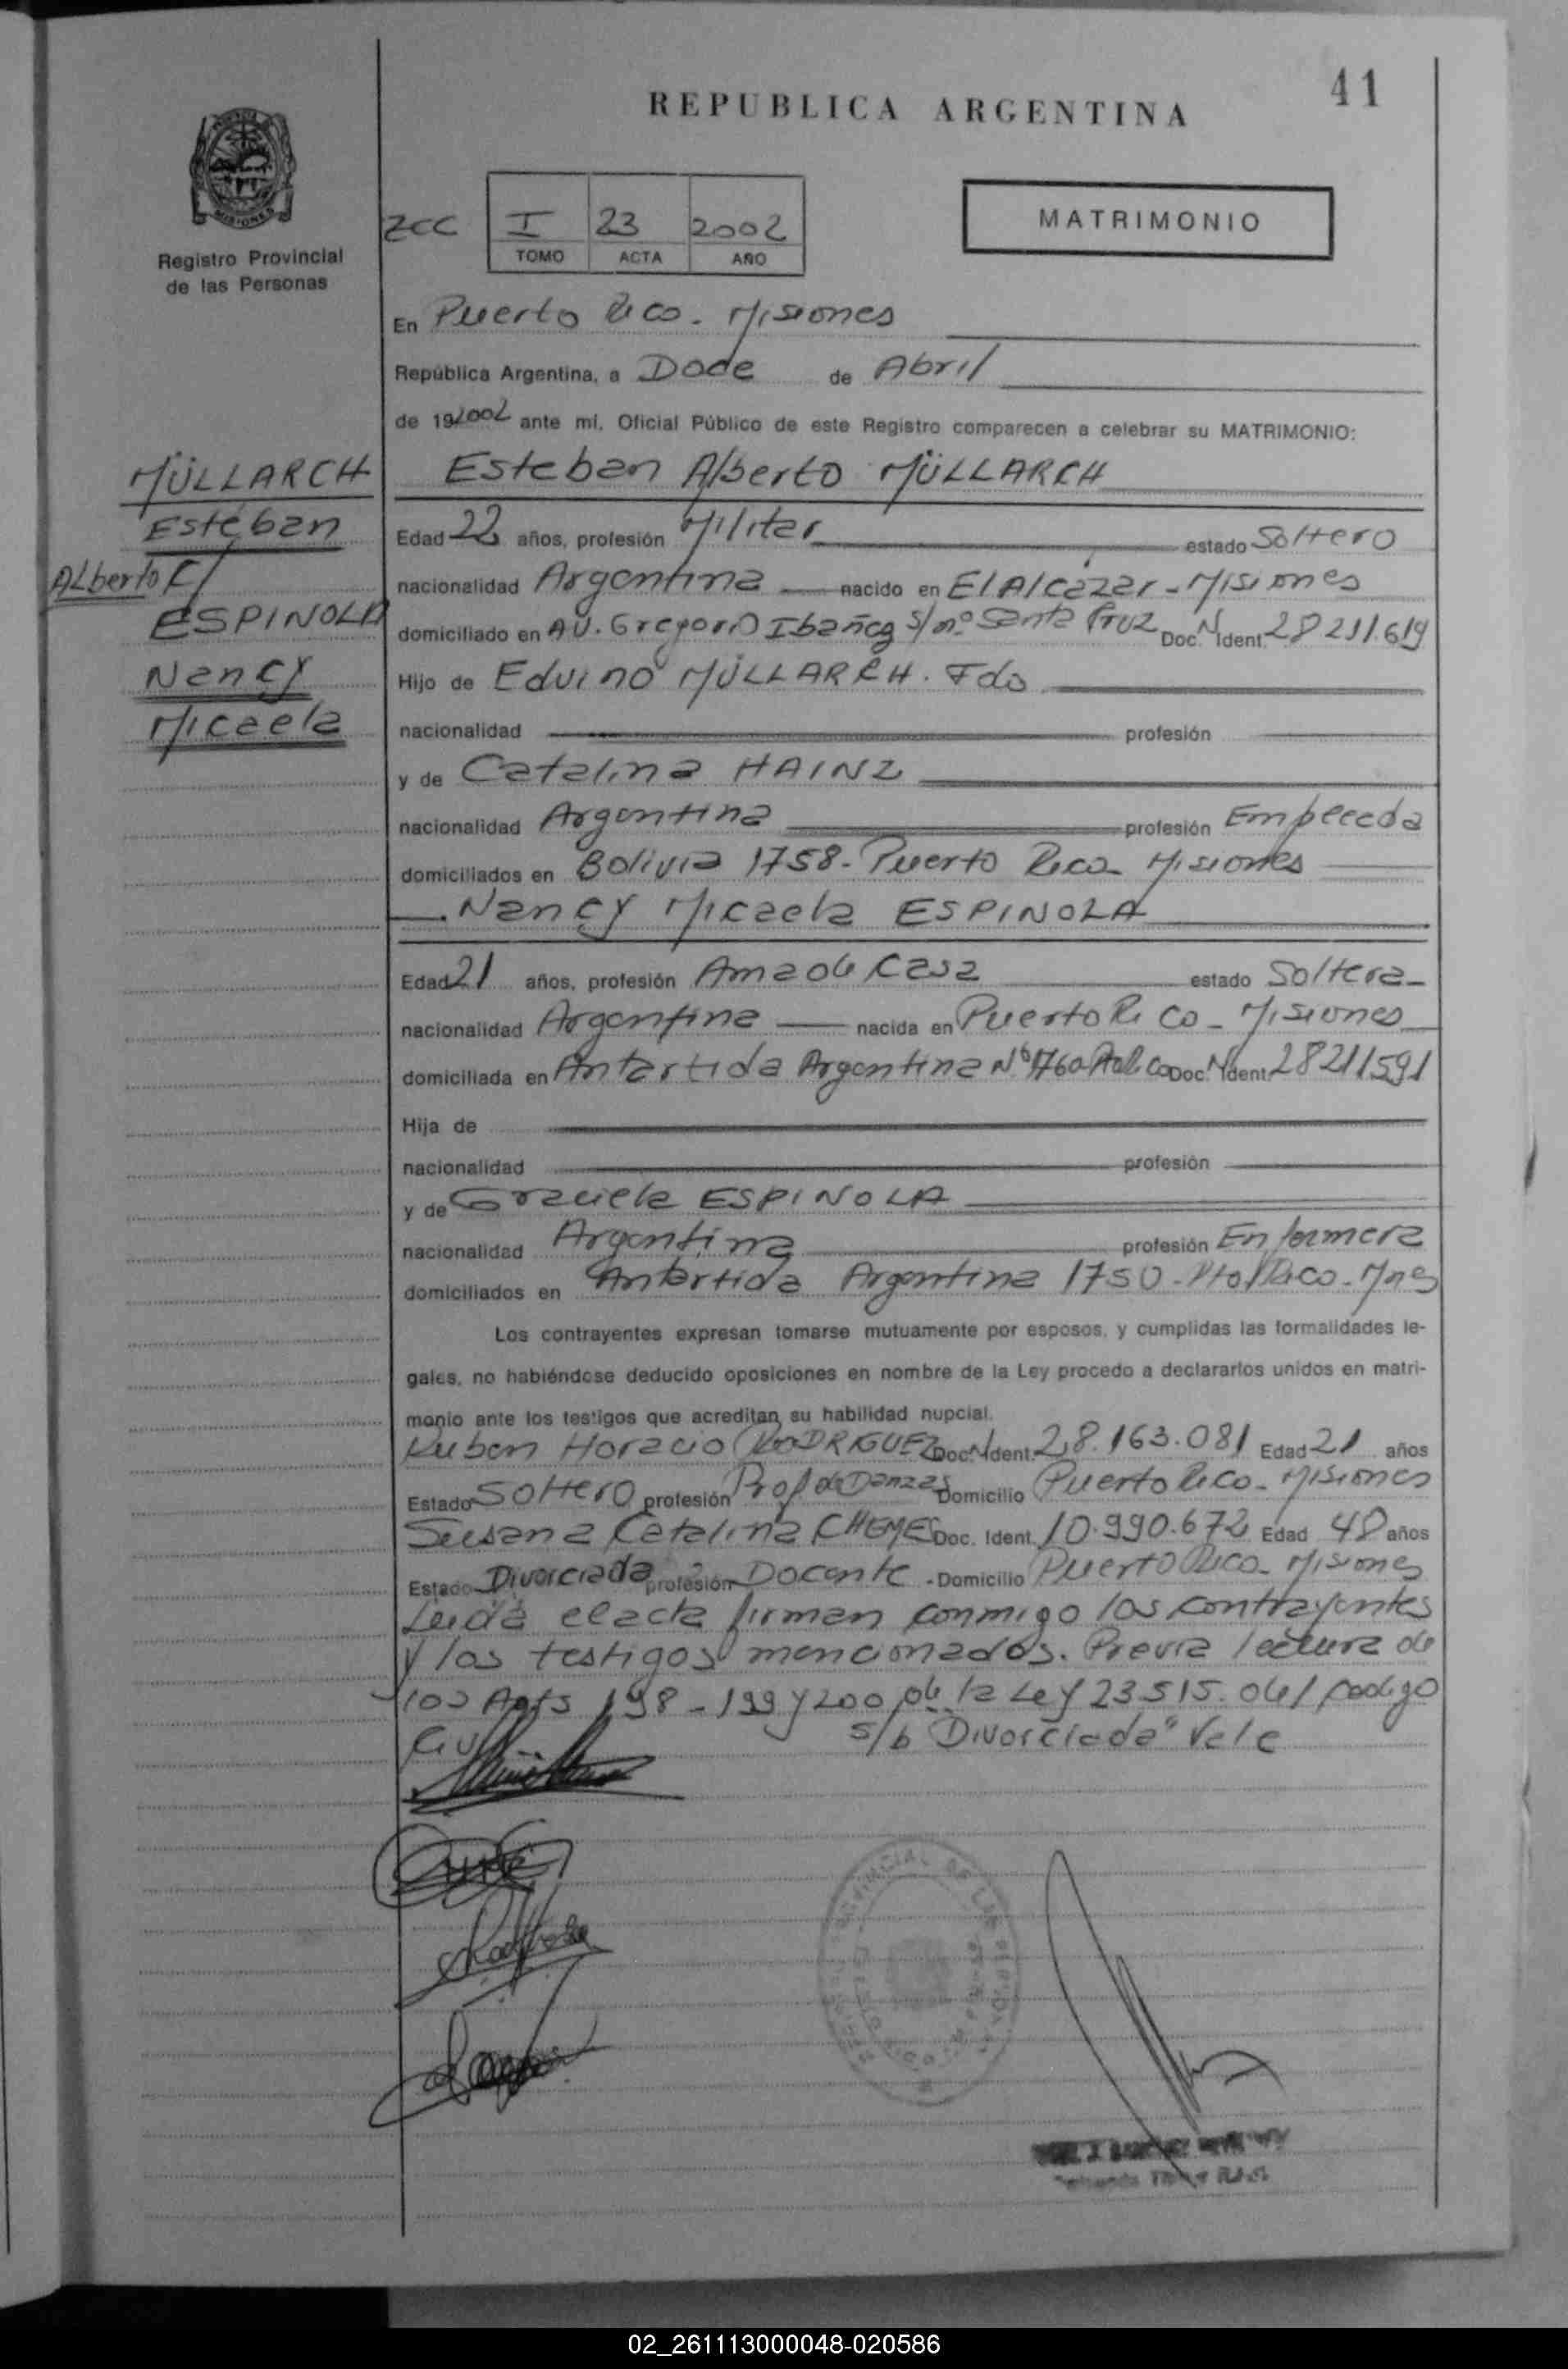 41
REPUBLICA ARGENTINA
MISIONES
Registro Provincial
de las Personas
ZCC I 23 2002
TOMO ACTA AÑO
MATRIMONIO
En Puerto Rico. Misiones
República Argentina, a Doce de Abril
de 192002 ante mí, Oficial Público de este Registro comparecen a celebrar su MATRIMONIO:
MÜLLARCH
Esteban
Alberto c/
ESPINOLA
Nancy
Micaela
Esteban Alberto MÜLLARCH
Edad 22 años, profesión Militar estado Soltero
nacionalidad Argentina nacido en El Alcázar - Misiones
domiciliado en AV. Gregorio Ibañez s/nº Santa Cruz Doc. N Ident. 28211.619
Hijo de Edvino MÜLLARCH. Fdo
nacionalidad profesión
y de Catalina HAINZ
nacionalidad Argentina profesión Empleada
domiciliados en Bolivia 1758 - Puerto Rico Misiones
Nancy Micaela ESPINOLA
Edad 21 años, profesión Ama de Casa estado Soltera
nacionalidad Argentina nacida en Puerto Rico - Misiones
domiciliada en Antartida Argentina Nº 1760 Doc. N Ident. 28211591
Hija de
nacionalidad profesión
y de Graciela ESPINOLA
nacionalidad Argentina profesión Enfermera
domiciliados en Antartida Argentina 1750 - Pto Rico - Mnes
Los contrayentes expresan tomarse mutuamente por esposos, y cumplidas las formalidades le-
gales, no habiéndose deducido oposiciones en nombre de la Ley procedo a declararlos unidos en matri-
monio ante los testigos que acreditan su habilidad nupcial.
Ruben Horacio RODRIGUEZ Doc. N Ident. 28.163.081 Edad 21 años
Estado Soltero profesión Prof de Danzas Domicilio Puerto Rico - Misiones
Susana Catalina CHEMES Doc. Ident. 10.990.672 Edad 48 años
Estado Divorciada profesión Docente - Domicilio Puerto Rico - Misiones
Leida el acta firman conmigo los contrayentes
y los testigos mencionados. Previa lectura de
los Arts 198 - 199 y 200 de la Ley 23515. del codigo
Civil s/b "Divorciada" Vale
02_261113000048-020586